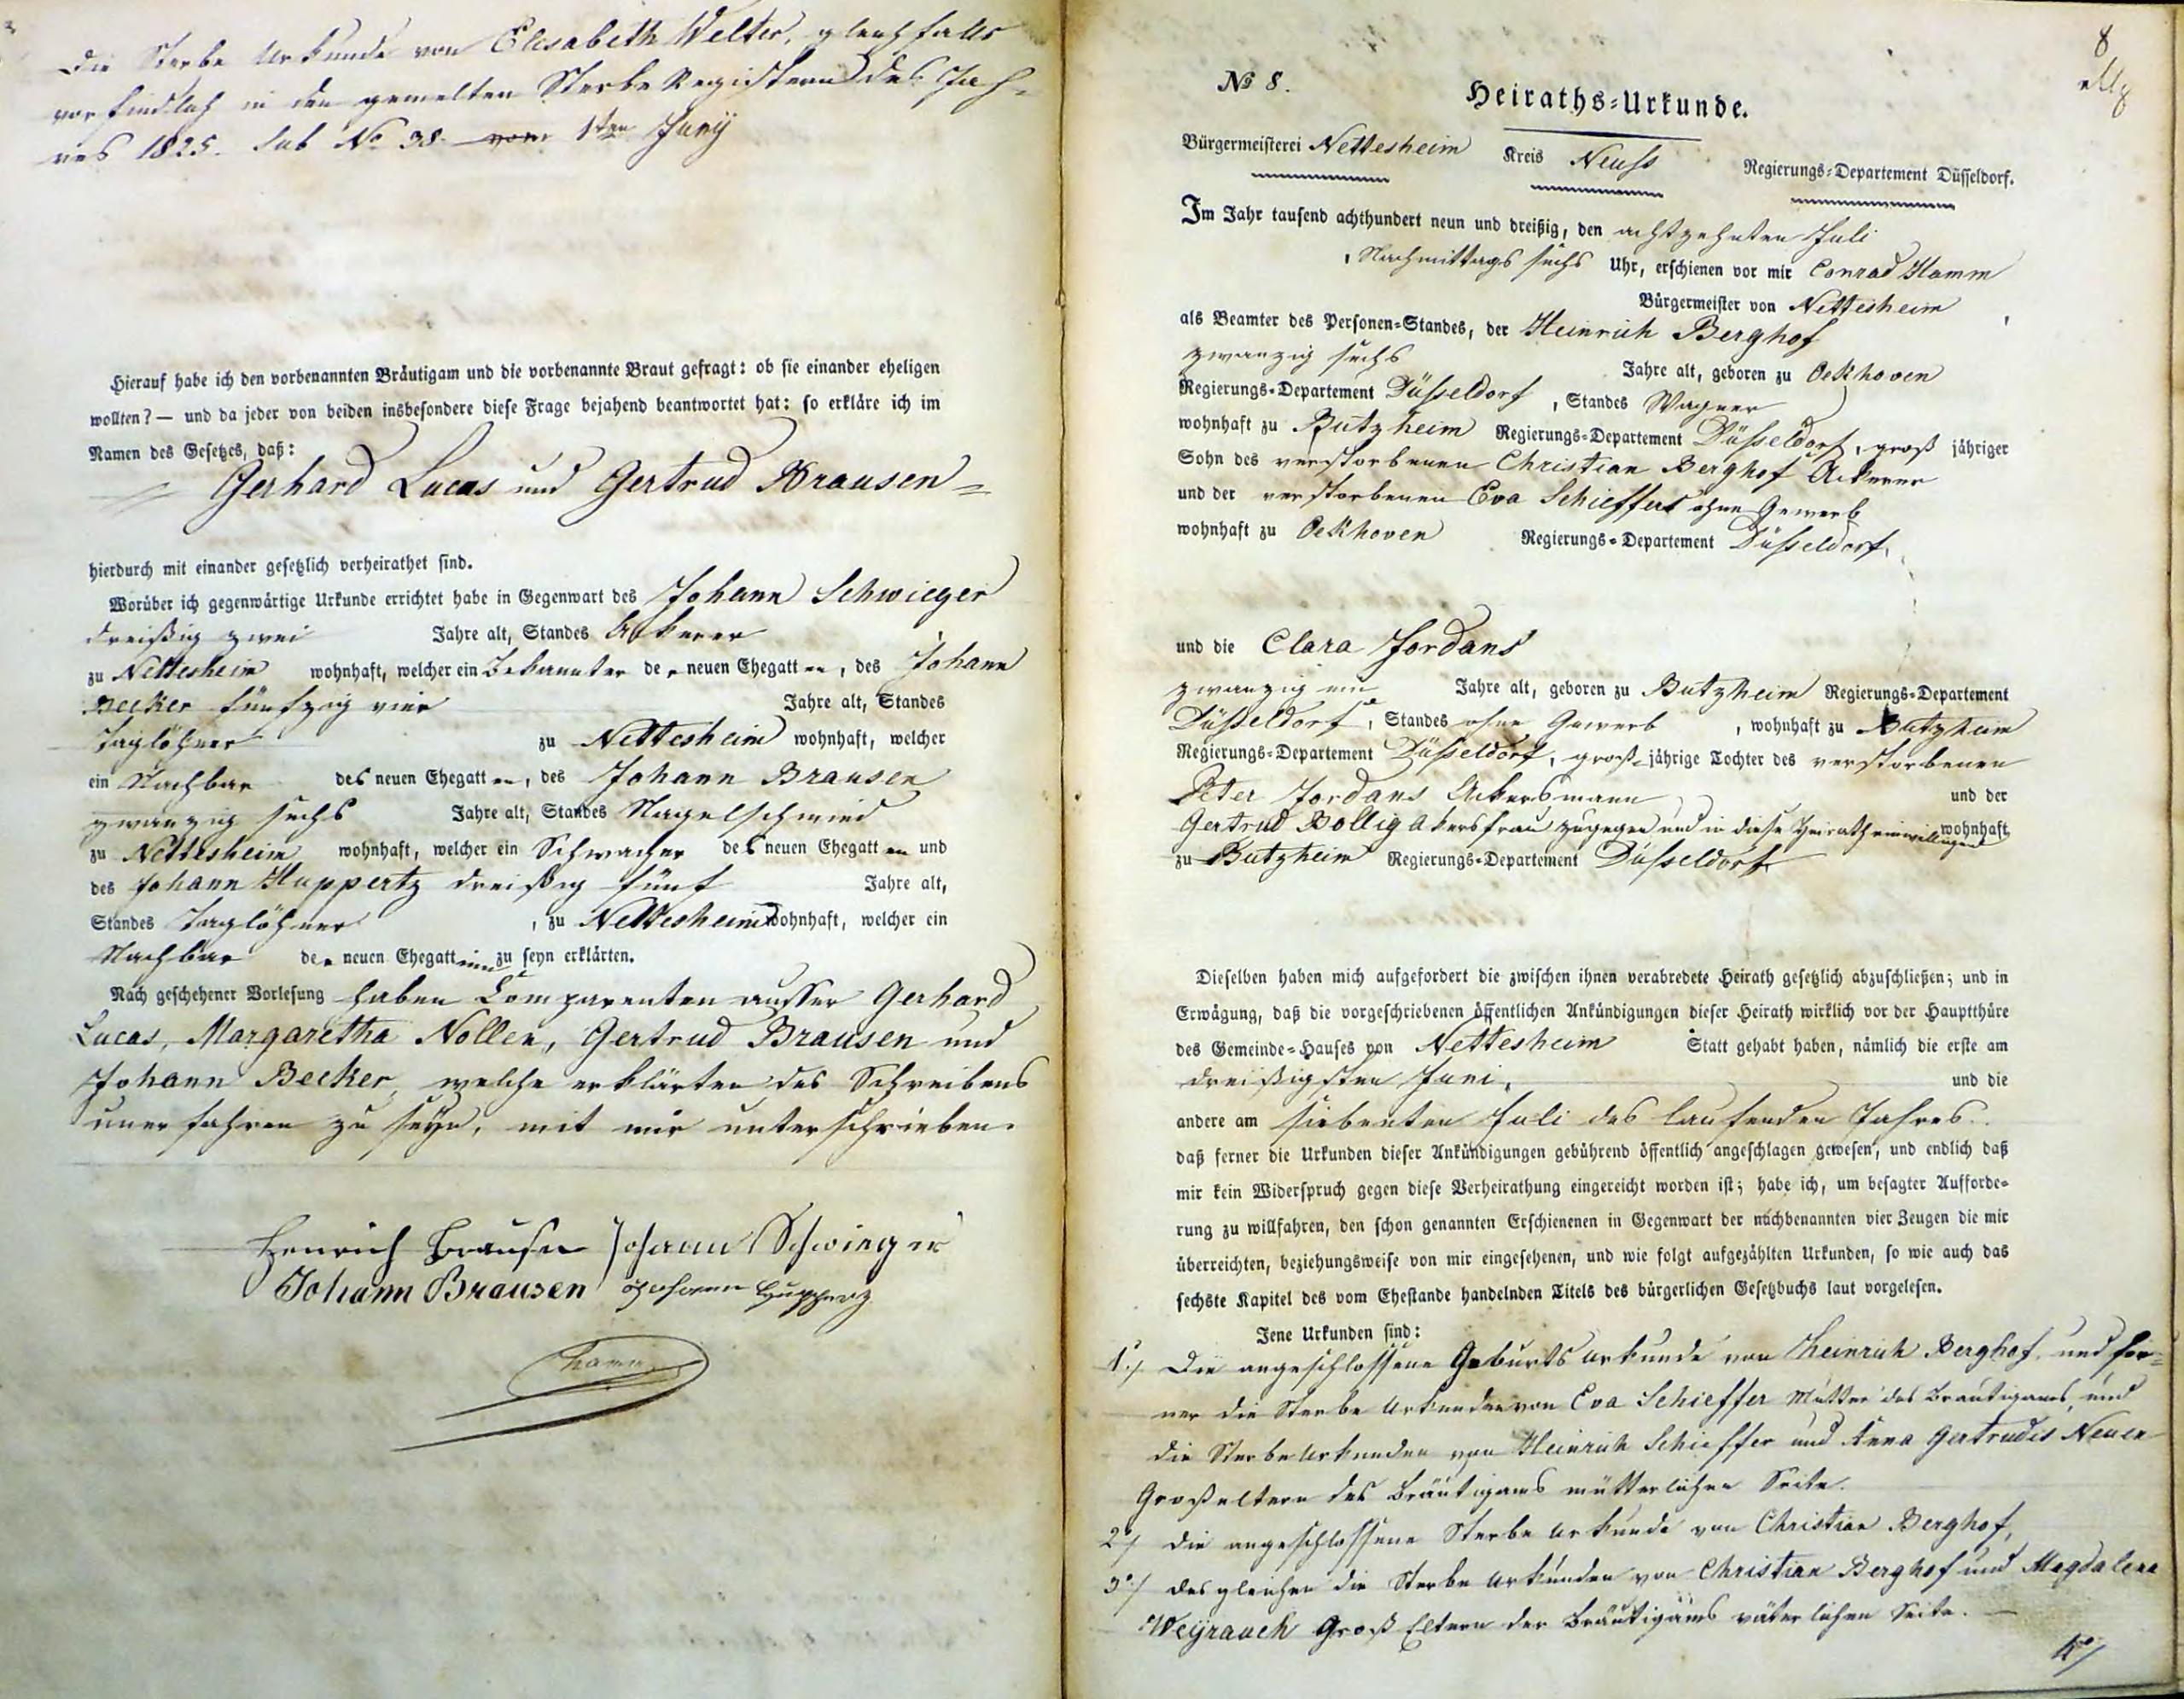 Die Sterbe Urkunde von Elisabeth Welter, gleichfalls
vorfindlich in den gemelten Sterbe Registern des Jah-
res 1825. sub No 38. vom 1ten Juny
Hierauf habe ich den vorbenannten Bräutigam und die vorbenannte Braut gefragt: ob sie einander eheligen
wollten? — und da jeder von beiden insbesondere diese Frage bejahend beantwortet hat: so erkläre ich im
Namen des Gesetzes, daß:
Gerhard Lucas und Gertrud Brausen
hierdurch mit einander gesetzlich verheirathet sind.
Worüber ich gegenwärtige Urkunde errichtet habe in Gegenwart des Johann Schwieger
dreißig zwei Jahre alt, Standes Ackerer
zu Nettesheim wohnhaft, welcher ein Bekannter der neuen Ehegatten, des Johann
Becker fünfzig vier Jahre alt, Standes
Taglöhner zu Nettesheim wohnhaft, welcher
ein Nachbar des neuen Ehegatten, des Johann Brausen
zwanzig sechs Jahre alt, Standes Nagelschmied
zu Nettesheim wohnhaft, welcher ein Schwager des neuen Ehegatten und
des Johann Huppertz dreißig fünf Jahre alt,
Standes Taglöhner, zu Nettesheim wohnhaft, welcher ein
Nachbar der neuen Ehegattinn zu seyn erklärten.
Nach geschehener Vorlesung haben Comparenten ausser Gerhard
Lucas, Margaretha Nollen, Gertrud Brausen und
Johann Becker, welche erklärten des Schreibens
unerfahren zu seyn, mit mir unterschrieben.
Henrich Brausen Johann Schwieger
Johann Brausen Johann Hupperz
Hamm
8
No 8.
Heiraths-Urkunde.
Bürgermeisterei Nettesheim Kreis Neuss Regierungs-Departement Düsseldorf.
Im Jahr tausend achthundert neun und dreißig, den achtzehnten Juli
, Nachmittags sechs Uhr, erschienen vor mir Conrad Hamm
Bürgermeister von Nettesheim,
als Beamter des Personen-Standes, der Heinrich Berghof
zwanzig sechs Jahre alt, geboren zu Oekhoven
Regierungs-Departement Düsseldorf, Standes Wagner
wohnhaft zu Butzheim Regierungs-Departement Düsseldorf, groß jähriger
Sohn des verstorbenen Christian Berghof Ackerer
und der verstorbenen Eva Schieffer ohne Gewerb
wohnhaft zu Oekhoven Regierungs-Departement Düsseldorf,
und die Clara Jordans
zwanzig ein Jahre alt, geboren zu Butzheim Regierungs-Departement
Düsseldorf, Standes ohne Gewerb, wohnhaft zu Butzheim
Regierungs-Departement Düsseldorf, groß-jährige Tochter des verstorbenen
Peter Jordans Ackersmann und der
Gertrud Bollig Akersfrau zugegen und in diese Heirath einwilligend wohnhaft
zu Butzheim Regierungs-Departement Düsseldorf.
Dieselben haben mich aufgefordert die zwischen ihnen verabredete Heirath gesetzlich abzuschließen; und in
Erwägung, daß die vorgeschriebenen öffentlichen Ankündigungen dieser Heirath wirklich vor der Hauptthüre
des Gemeinde-Hauses von Nettesheim Statt gehabt haben, nämlich die erste am
dreißigsten Juni, und die
andere am siebenten Juli des laufenden Jahres.
daß ferner die Urkunden dieser Ankündigungen gebührend öffentlich angeschlagen gewesen, und endlich daß
mir kein Widerspruch gegen diese Verheirathung eingereicht worden ist; habe ich, um besagter Aufforde-
rung zu willfahren, den schon genannten Erschienenen in Gegenwart der nachbenannten vier Zeugen die mir
überreichten, beziehungsweise von mir eingesehenen, und wie folgt aufgezählten Urkunden, so wie auch das
sechste Kapitel des vom Ehestande handelnden Titels des bürgerlichen Gesetzbuchs laut vorgelesen.
Jene Urkunden sind:
1./ Die angeschlossene Geburts Urkunde von Heinrich Berghof, und fer-
ner die Sterbe Urkunden von Eva Schieffer Mutter des Bräutigams, und
die Sterbe Urkunden von Heinrich Schieffer und Anna Gertrudis Neuen
Großeltern des Bräutigams mütterlichen Seite.
2./ die angeschlossene Sterbe Urkunde von Christian Berghof,
3./ desgleichen die Sterbe Urkunden von Christian Berghof und Magdalena
Weyrauch Groß Eltern des Bräutigams väterlichen Seite. —
4./